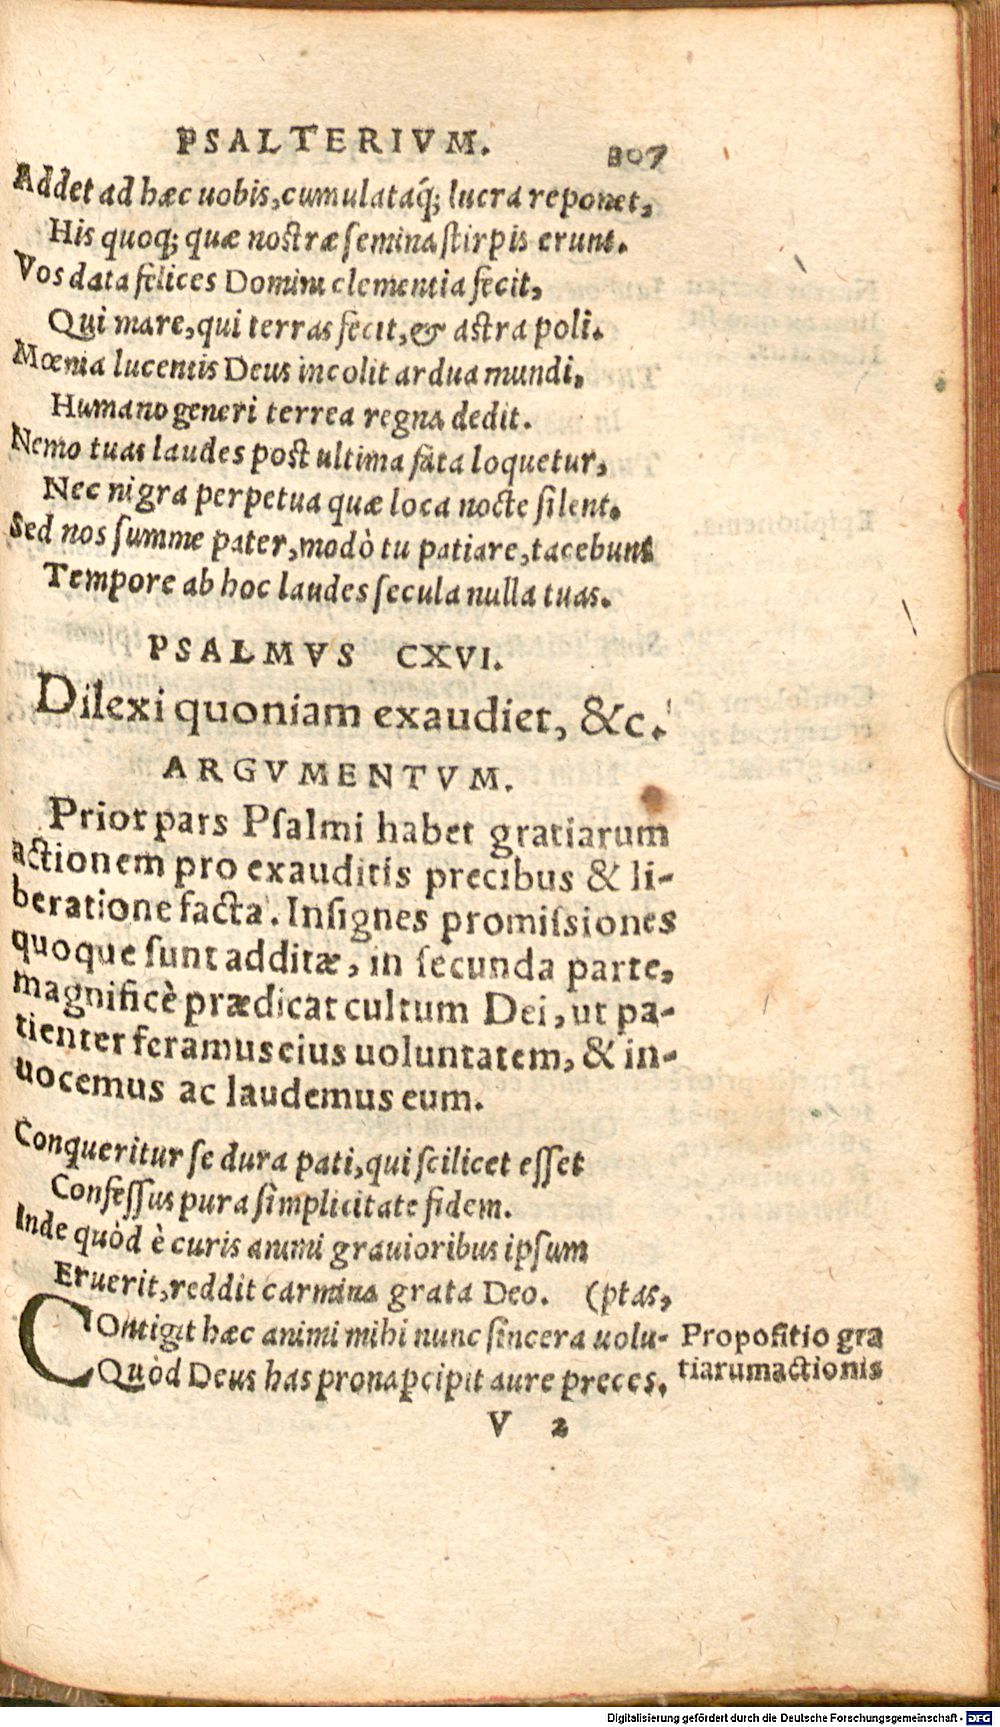 PSALTERIVM. 307
Addet ad hæc uobis, cumulataq́; lucra reponet,
His quoq; quæ nostræ semina stirpis erunt.
Vos data felices Domini clementia fecit,
Qui mare, qui terras fecit, & astra poli.
Mœnia lucentis Deus incolit ardua mundi,
Humano generi terrea regna dedit.
Nemo tuas laudes post ultima fata loquetur,
Nec nigra perpetua quæ loca nocte silent.
Sed nos summe pater, modò tu patiare, tacebunt
Tempore ab hoc laudes secula nulla tuas.
PSALMVS CXVI.
Dilexi quoniam exaudiet, &c.
ARGVMENTVM.
Prior pars Psalmi habet gratiarum
actionem pro exauditis precibus & li-
beratione facta. Insignes promissiones
quoque sunt additæ, in secunda parte,
magnificè prædicat cultum Dei, ut pa-
tienter feramus eius uoluntatem, & in-
uocemus ac laudemus eum.
Conqueritur se dura pati, qui scilicet esset
Confessus pura simplicitate fidem.
Inde quòd è curis animi grauioribus ipsum
Eruerit, reddit carmina grata Deo. (ptas,
COntigit hæc animi mihi nunc sincera uolu-
Quòd Deus has prona ꝑcipit aure preces.
Propositio gra
tiarumactionis
V 2
Digitalisierung gefördert durch die Deutsche Forschungsgemeinschaft - DFG